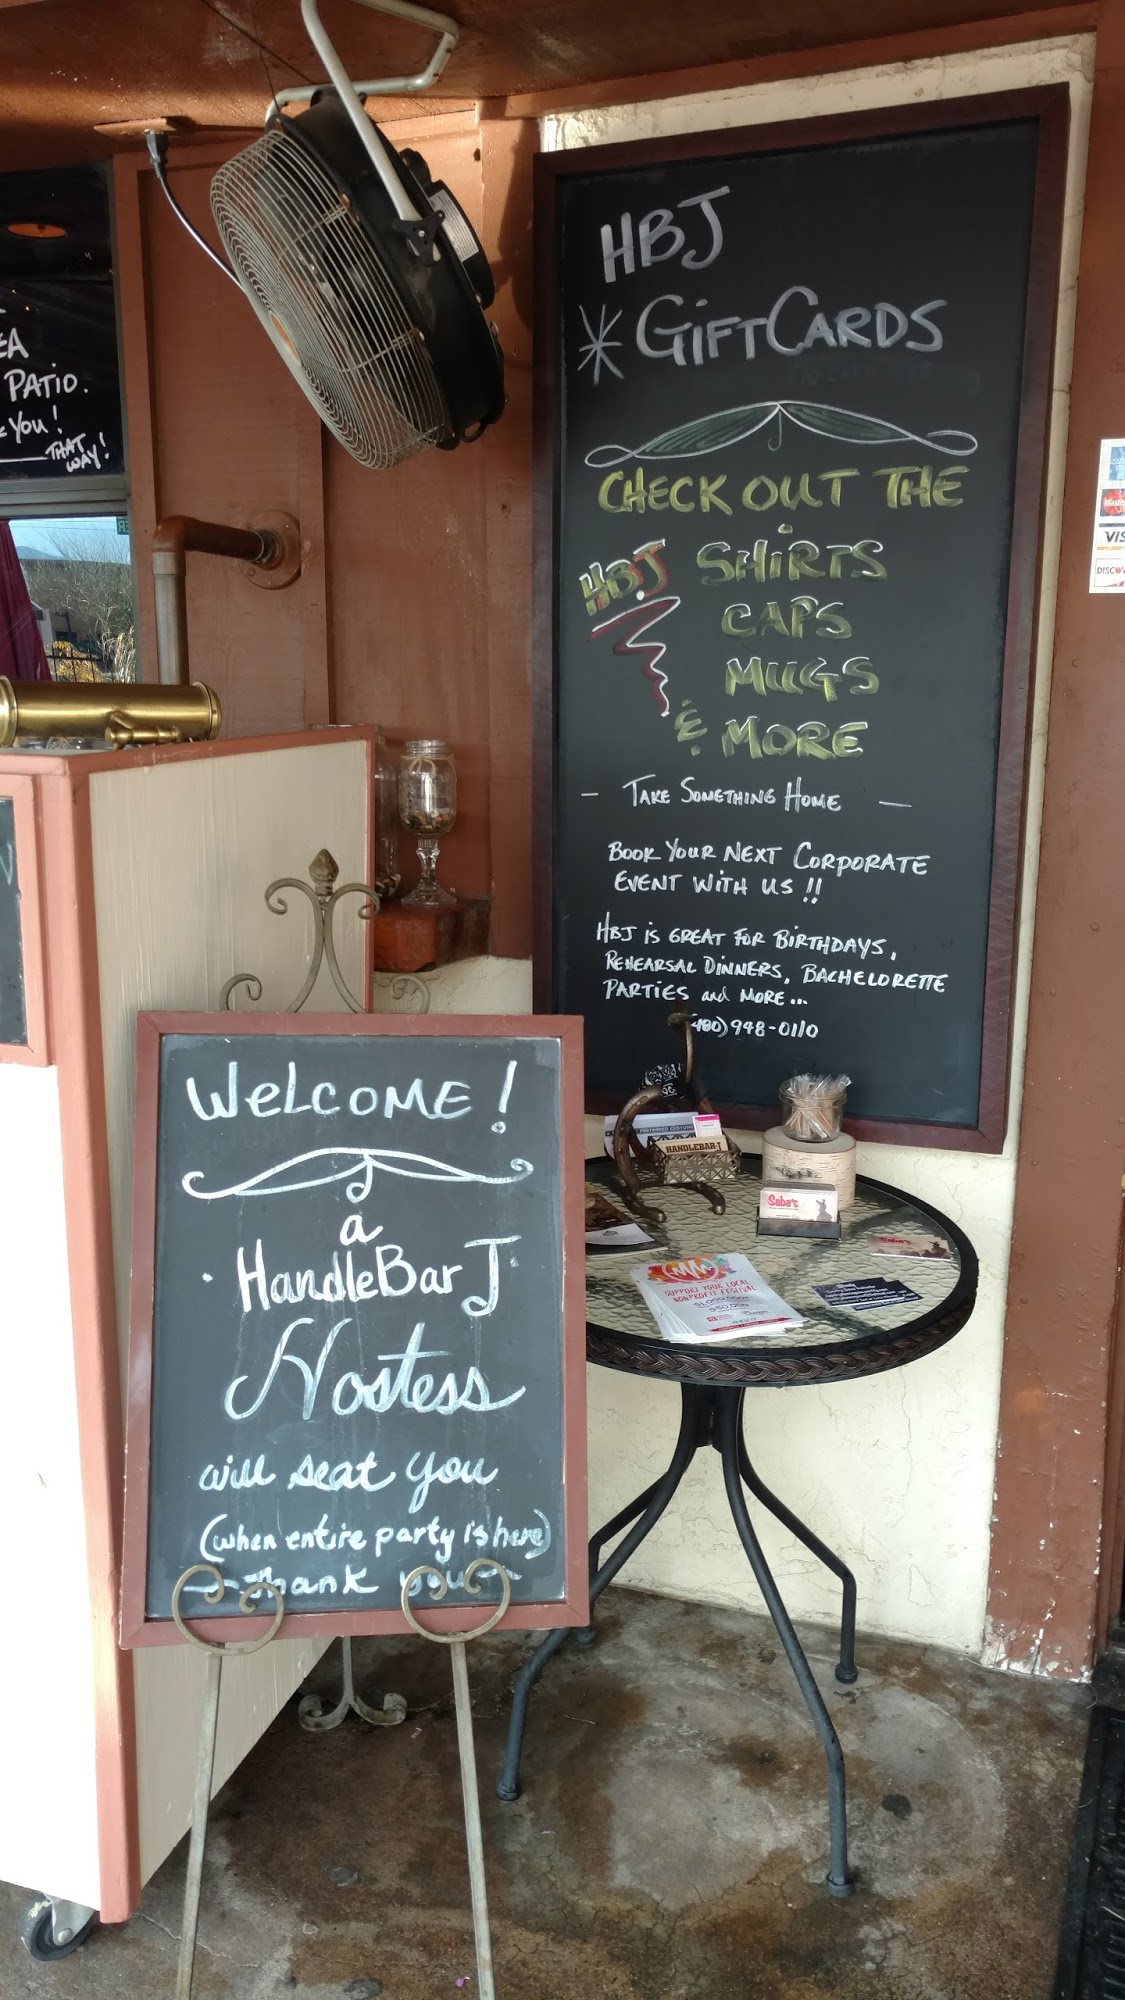 HBJ
* GIFT CARDS
CHECK OUT THE
HBJ SHIRTS
CAPS
MUGS
& MORE
- TAKE SOMETHING HOME -
BOOK YOUR NEXT CORPORATE
EVENT WITH US !!
HBJ IS GREAT FOR BIRTHDAYS,
REHEARSAL DINNERS, BACHELORETTE
PARTIES and MORE...
(480) 948-0110
PATIO.
YOU!
THAT
WAY!
WELCOME!
a
HandleBar J
Hostess
will seat you
(when entire party is here)
Thank you
HANDLEBAR-J
Saba's
SUPPORT YOUR LOCAL
NONPROFIT FESTIVAL
VIS
DISCOV